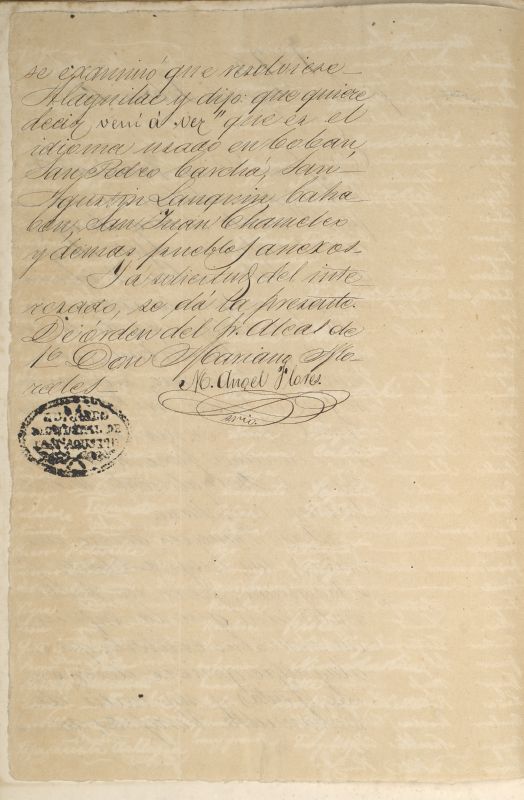 se examinó que resolviese
Alagnilac y dijo: que quiere
decir veni á vez" que es el
idioma usado en Coban,
San Pedro Carchá, San
Agustin Lanquin, Caha-
bon, San Juan Chamelco
y demas pueblos anexos—
Y a solicitud del inte-
rezado, se dá la presente.
De órden del Sr. Alcalde
1º Don Mariano Mo-
rales—
M. Angel Flores
srio.
DE
SAN AGUSTIN